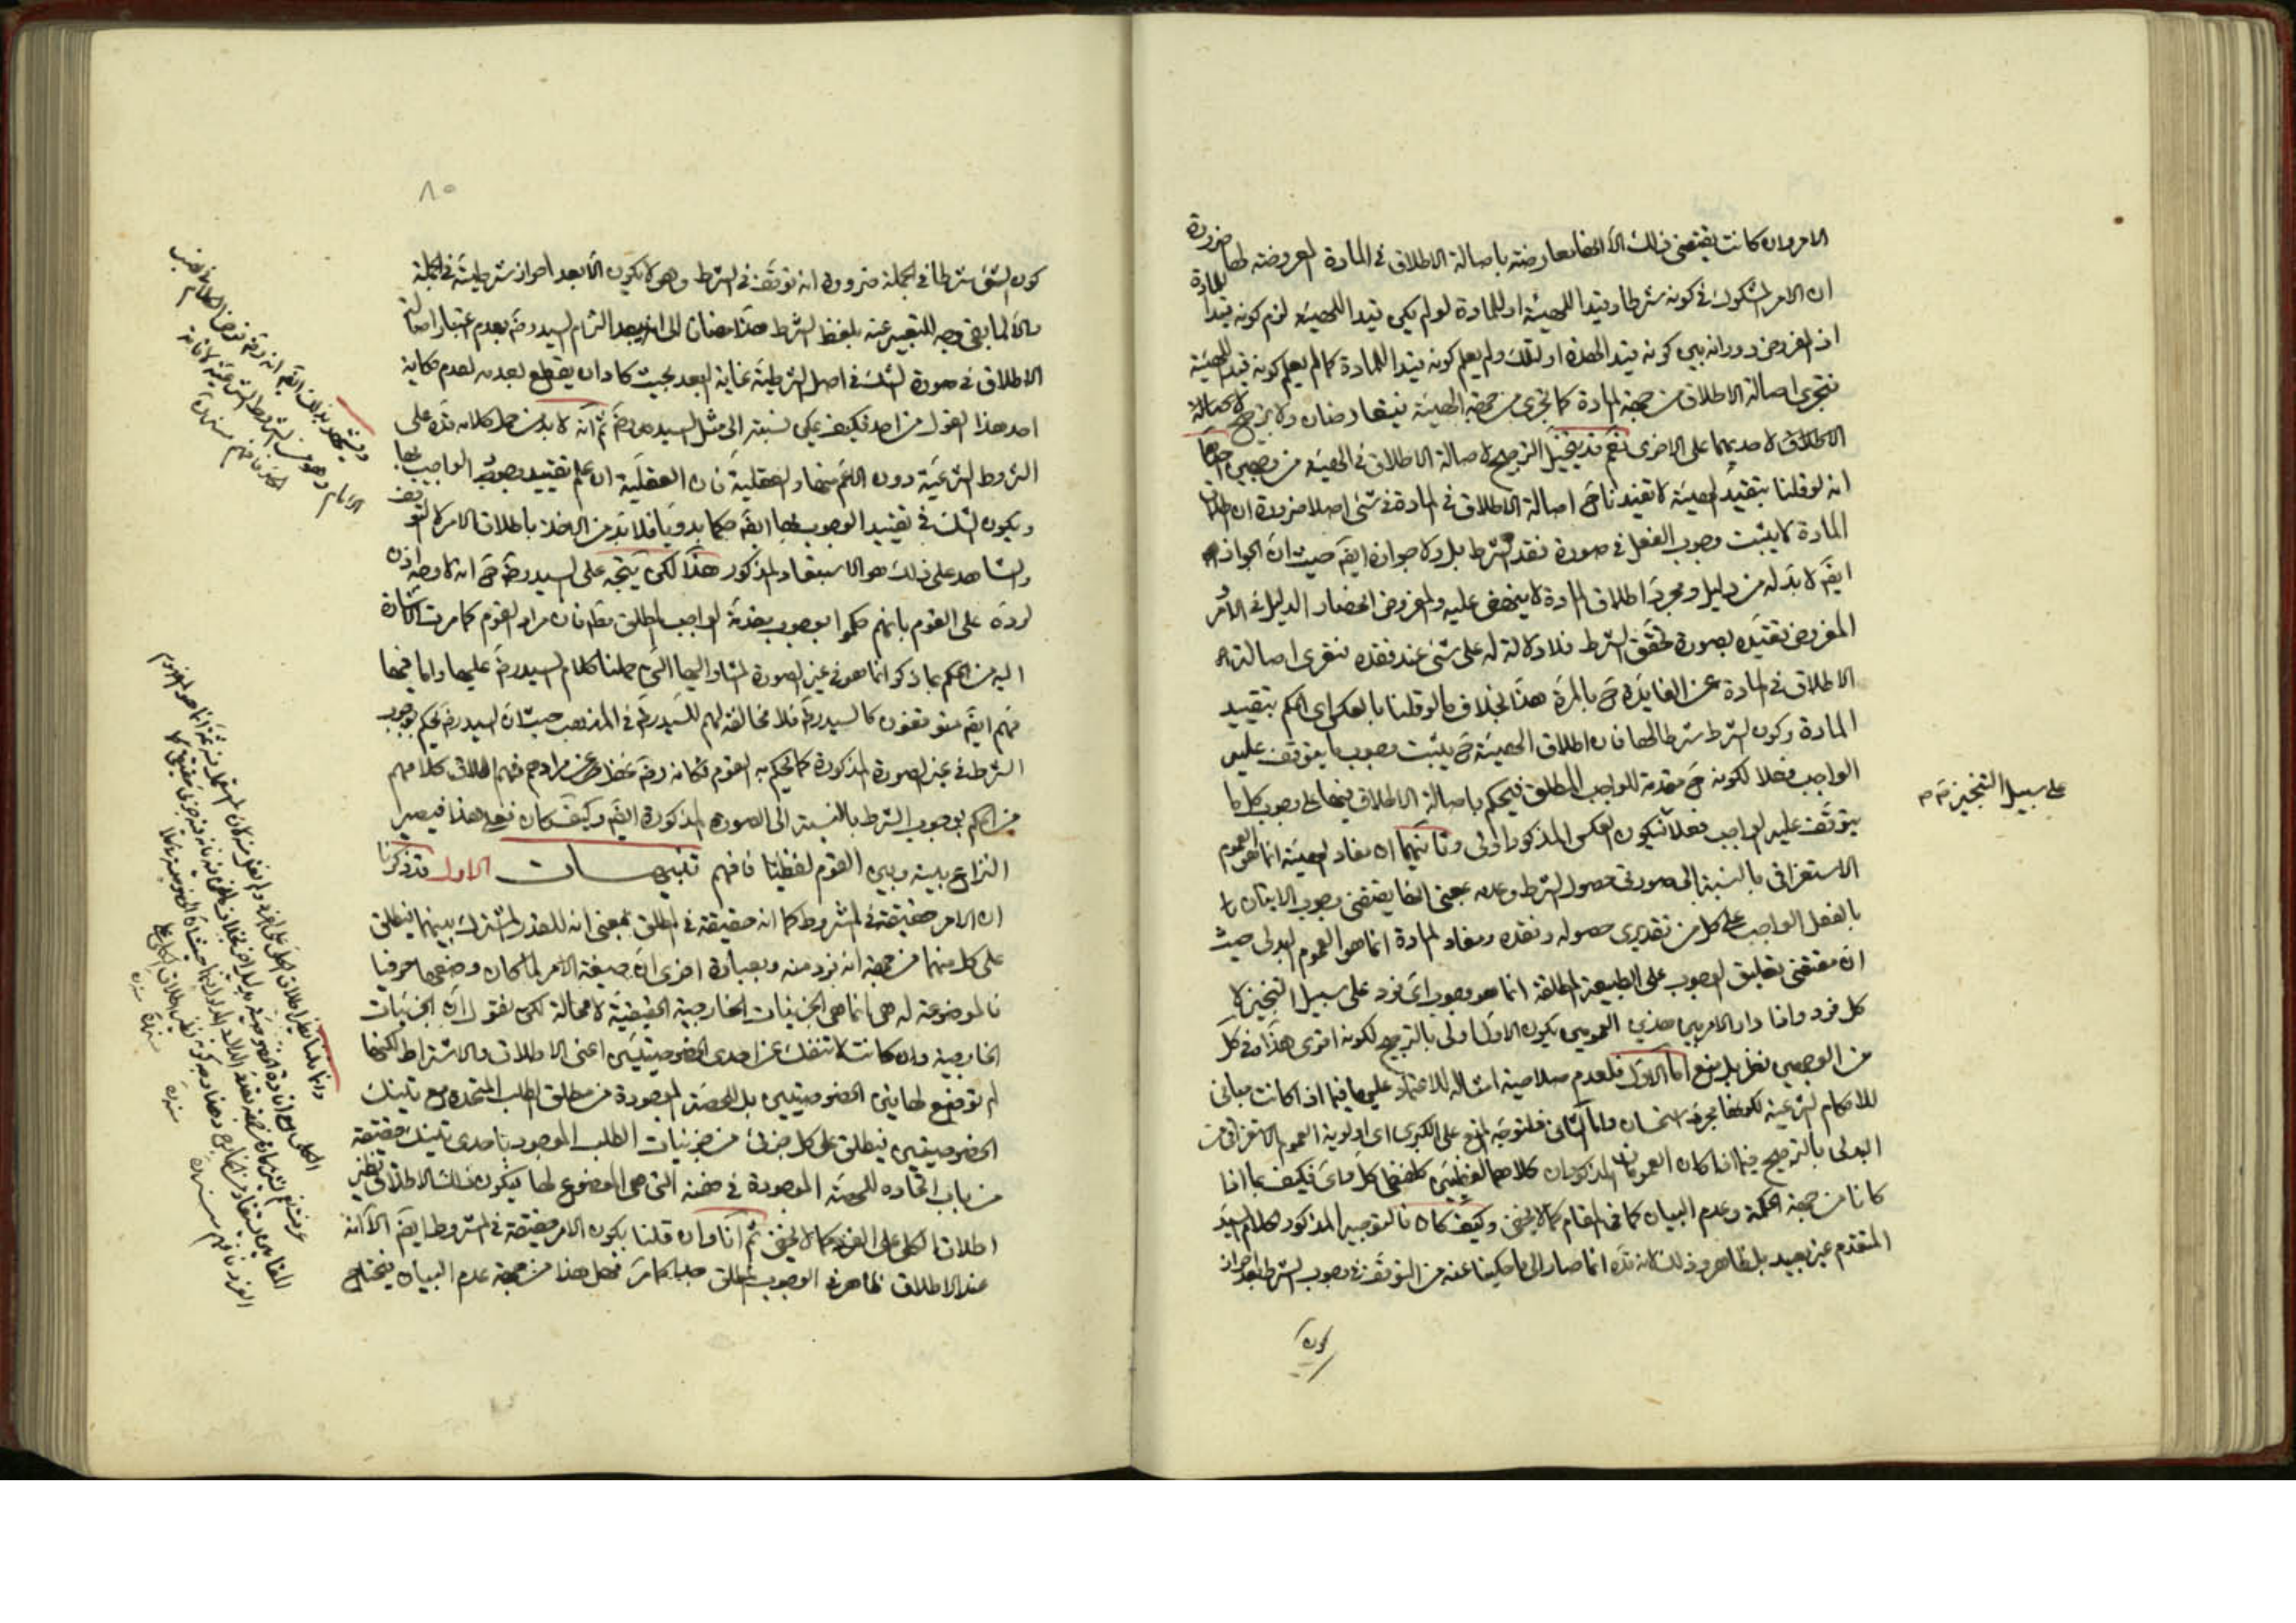 الامر وان كانت يقتضى ذلك الا انها معارضة باصالة الاطلاق في المادة المعروضة لها ضرورة
ان الامر المشكوك في كونه شرطا وقيدا للهيئة او للمادة لو لم يكن قيدا للهيئة لزم كونه قيدا للمادة
اذ المفروض دورانه بين كونه قيدا لهذه او لتلك ولم يعلم كونه قيدا للمادة كما لم يعلم كونه قيد الهيئة
فتجرى اصالة الاطلاق من جهة المادة كما تجرى من جهة الهيئة فيتعارضان ولا ترجيح لاصالة
الاطلاق لاحديهما على الاخرى نعم قد يتخيل الترجيح لاصالة الاطلاق في الهيئة من وجهين احدهما
انه لو قلنا بتقييد الهيئة لا تفيدنا ح اصالة الاطلاق في المادة في شئ اصلا ضرورة ان اطلاق
المادة لا يثبت وجوب الفعل في صورة فقد الشرط بل ولا جوازه ايضا حيث ان الجواز
ايضا لا بد له من دليل ومجرد اطلاق المادة لا ينهض عليه والمفروض انحصار الدليل في الامر
المفروض تقييده بصورة تحقق الشرط فلا دلالة له على شئ عند فقده فتعرى اصالة
الاطلاق في المادة عن الفائدة ح بالمرة هذا بخلاف ما لو قلنا بالعكس اى الحكم بتقييد
المادة وكون الشرط شرطا لها فان اطلاق الهيئة ح يثبت وجوب ما يتوقف عليه
الواجب فعلا لكونه ح مقدمة للواجب المطلق فيحكم باصالة الاطلاق فيها على وجوب كل ما
يتوقف عليه الواجب فعلا فيكون العكس المذكور اولى وثانيهما ان مفاد الهيئة انما هو العموم
الاستغراقى بالنسبة الى صورتى حصول الشرط وعدمه بمعنى انها يقتضى وجوب الاتيان
بالفعل الواجب على كل من تقديرى حصوله وفقده ومفاد المادة انما هو العموم البدلى حيث
ان مقتضى تعليق الوجوب على الطبيعة المطلقة انما هو وجوب اى فرد على سبيل التخيير لا
كل فرد واذا دار الامر بين هذين العمومين يكون الاول اولى بالترجيح لكونه اقوى هذا وفي كل
من الوجهين نظر بل منع اما الاول فلعدم صلاحية امثاله للاعتماد عليها فيما اذا كانت مبانى
للاحكام الشرعية لكونها مجرد استحسان واما الثانى فلتوجه المنع على الكبرى اى اولوية العموم الاستغراقى من
البدلى بالترجيح فيما اذا كان العمومان المذكوران كلاهما لفظيين كلفظى كل واى فكيف بما اذا
كانا من جهة الحكمة وعدم البيان كما في المقام كما لا يخفى وكيف كان فالتوجيه المذكور لكلام السيد
المتقدم غير بعيد بل ظاهر وذلك لانه قده انما صار الى ما حكينا عنه من التوقف في وجوب الشرط بعد احراز
كون
على سبيل التخيير صح
٨٥
كون الشئ شرطا في الجملة ضرورة انه توقف في الشرط وهو لا يكون الا بعد احراز شرطيته في الجملة
والا لما بقى وجه للتعبير عنه بلفظ الشرط هذا مضافا الى انه يبعد التزام السيد رضى بعدم اعتبار اصالة
الاطلاق في صورة الشك في اصل الشرطية غاية البعد بحيث كاد ان يقطع بعدمه لعدم حكاية
احد هذا القول من احد فكيف يمكن نسبته الى مثل السيد رضى ثم انه لا بد من حمل كلامه قده على
الشروط الشرعية دون الاعم منها والعقلية فان العقلية ان علم تقييد وجوب الواجب بها
ويكون الشك في تقييد الوجوب بها ايضا حكما بدويا فلا بد من الاخذ باطلاق الامر لا التوقف
والشاهد على ذلك هو الاستبعاد المذكور هذا لكن يتجه على السيد رضى ح انه لا وجه اذن
لرده على القوم بانهم حكموا بوجوب مقدمة الواجب المطلق مطلقا فان مراد القوم كما مرت الاشارة
اليه من الحكم بما ذكر انما هو في غير الصورة المشار اليها التى حملنا كلام السيد رضى عليها واما فيها
فهم ايضا متوقفون كالسيد رضى فلا مخالفة لهم للسيد رضى في المذهب حيث ان السيد رضى يحكم بوجوب
الشرط في غير الصورة المذكورة كما يحكم به القوم فكانه رضى غفل عن مرادهم ففهم اطلاق كلامهم
من الحكم بوجوب الشرط بالنسبة الى الصورة المذكورة ايضا وكيف كان فعلى هذا فيصير
النزاع بينه وبين القوم لفظيا فافهم تنبيهات الاول قد ذكرنا
ان الامر حقيقة في المشروط كما انه حقيقة في المطلق بمعنى انه للقدر المشترك بينهما فيطلق
على كل منهما من جهة انه فرد منه وبعبارة اخرى ان صيغة الامر لما كان وضعها حرفيا
فالموضوعة له هى انما هى الجزئيات الخارجية الحقيقية لا محالة لكن نقول ان الجزئيات
الخارجية وان كانت لا تنفك عن احدى الخصوصيتين اعنى الاطلاق والاشتراط لكنها
لم توضع لهاتين الخصوصيتين بل للحصة الموجودة من مطلق الطلب المتحدة مع تينك
الخصوصيتين فيطلق على كل جزئى من جزئيات الطلب الموجود باحدى تينك حقيقة
من باب اتحاده للحصة الموجودة في ضمنه التى هى الموضوع لها فيكون ذلك الاطلاق نظير
اطلاق الكلى على الفرد كما لا يخفى ثم انا وان قلنا بكون الامر حقيقة في المشروط ايضا الا انه
عند الاطلاق ظاهر في الوجوب المطلق كما مر فهل هذا من جهة عدم البيان فيحتاج